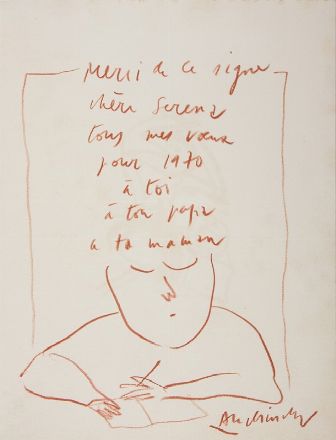 Merci de ce signe
chère Serena
tous mes vœux
pour 1970
à toi
à ton papa
a ta maman